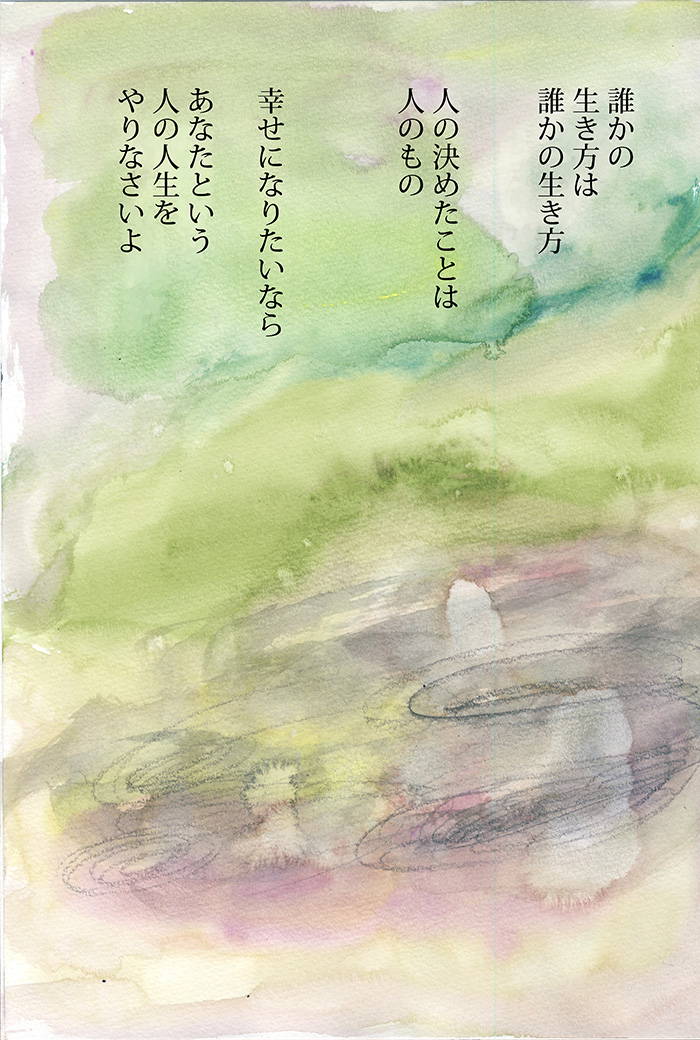 誰かの
生き方は
誰かの生き方
人の決めたことは
人のもの
幸せになりたいなら
あなたという
人の人生を
やりなさいよ